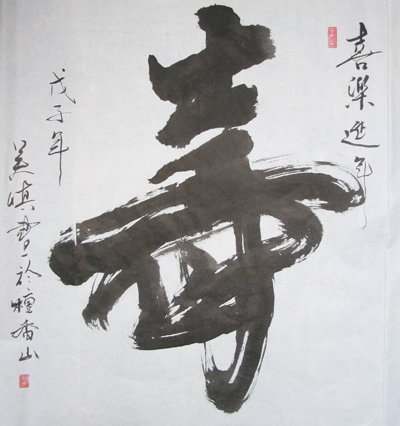 喜樂延年
壽
戊子年
吴慎書於檀香山